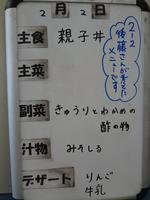 2月2日
主食 親子丼
主菜
副菜 きゅうりとわかめの
酢の物
汁物 みそしる
デザート りんご
牛乳
2-2
後藤さんが考えた
メニューです